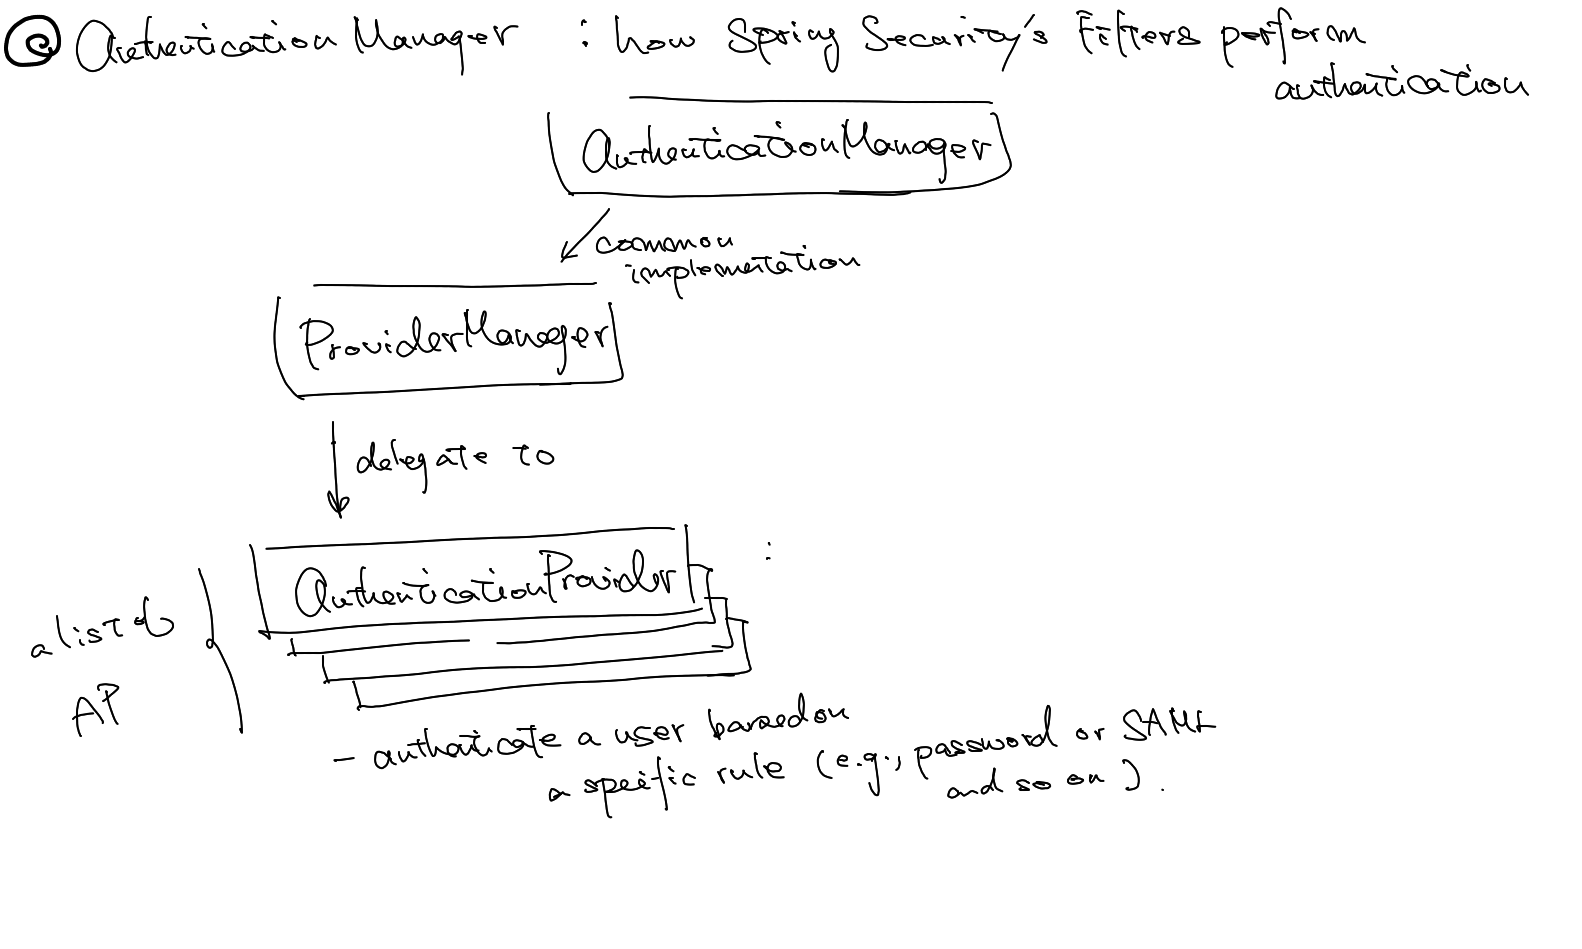 @ Authentication Manager : how Spring Security's Filters perform
authentication
AuthenticationManager
common
implementation
ProviderManager
delegate to
AuthenticationProvider :
a list of
AP
- authenticate a user based on
a specific rule (e.g., password or SAML
and so on).